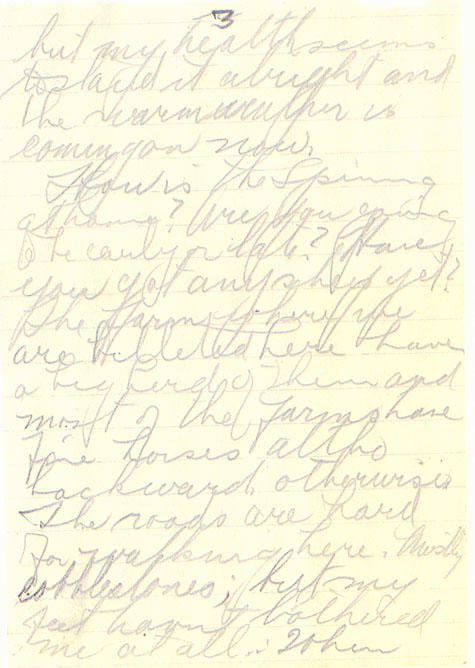 3
but my health seems
to stand it alright and
the warm weather is
coming on now.
How is the Spring
at home? Are you going
to be early or late? Have
you got any sheep yet?
The farms where we
are billeted here have
a big herd of them and
most of the farms have
fine horses altho
backward otherwise
The roads are hard
for walking here. Mostly
cobblestones; but my
feet havn't bothered
me at all. When